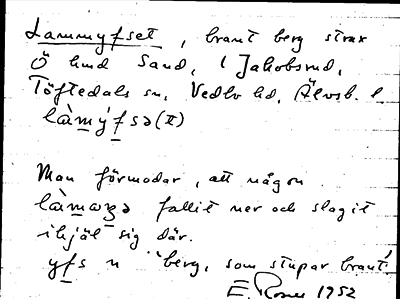 Lammyfset, brant berg strax
Ö hmd Sand, i Jakobsrud,
Töftedals sn, Vedbo hd, Älvsb. l
làmýfsə (II)
Man förmodar, att någon
làmaə fallit ner och slagit
ihjäl sig där.
yfs n berg, som stupar brant!
E. Rosen 1952